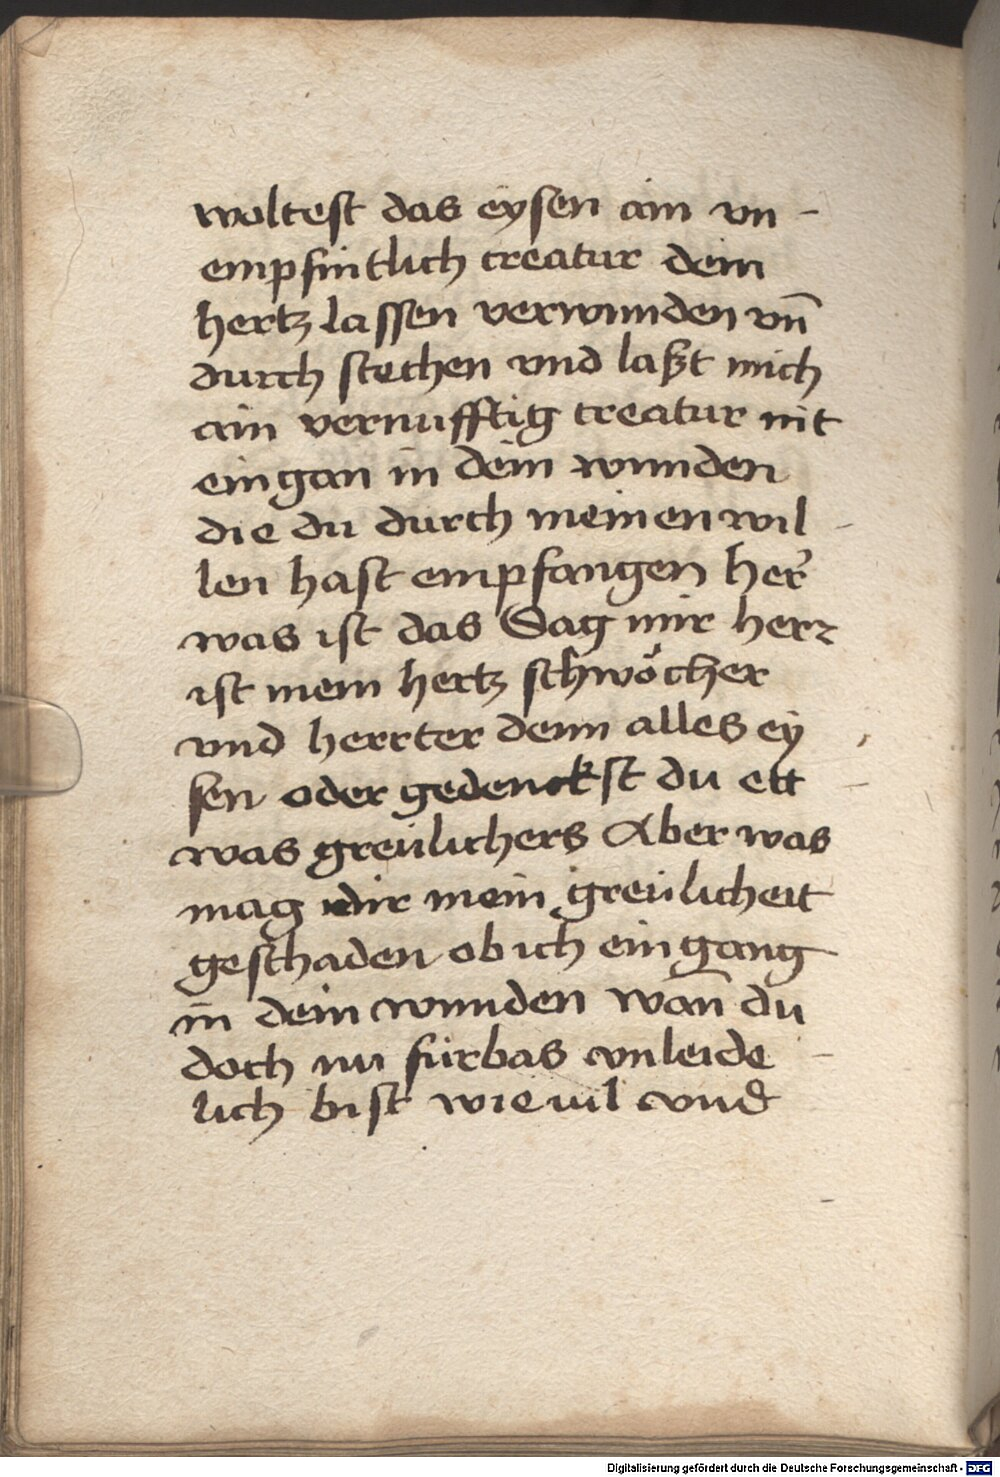 woltest das eysen ain vn -
empfintlich creatur dein
hertz lassen verwunden vn̄
durch stechen vnd laßt mich
ain vernufftig creatur nit
ein gan in dein wunden
die du durch meinen wil -
len hast empfangen her̕
was ist das Sag mir herr
ist mein hertz schwöcher
vnd herrter denn alles ey
sen oder gedenckst du ett -
was greülichers Aber was
mag dir mein greülicheit
geschaden ob ich ein gang
in dein wunden wan̄ du
doch nu fürbas vnleide -
lich bist wie uil vnd
Digitalisierung gefördert durch die Deutsche Forschungsgemeinschaft - DFG